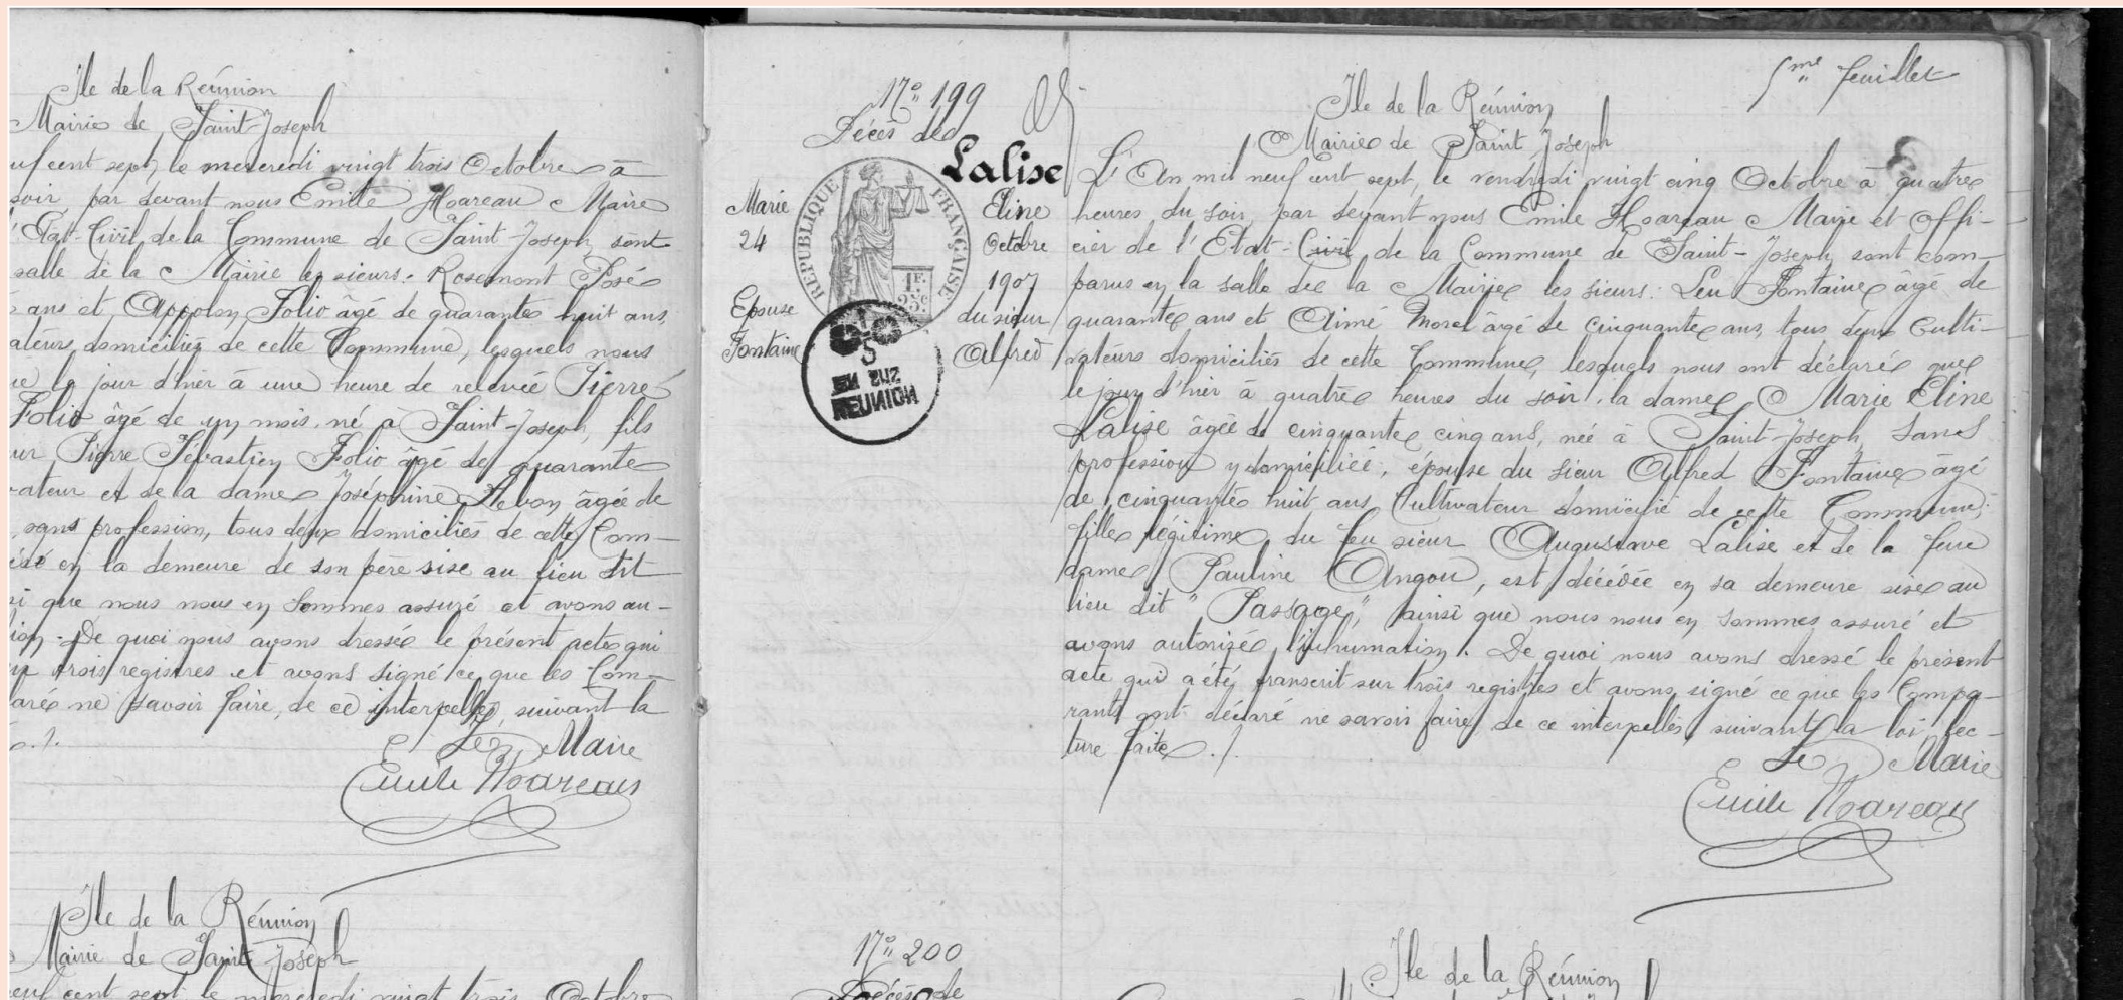 Ile de la Réunion
Mairie de Saint-Joseph
uf cent sept, le mercredi vingt trois Octobre à
soir, par devant nous Emile Hoareau Maire
l'Etat-Civil de la Commune de Saint-Joseph, sont
salle de la Mairie les sieurs: Rosemont José
ans et Appolon Folio âgé de quarante huit ans,
ateurs domiciliés de cette Commune, lesquels nous
ue le jour d'hier à une heure de relevée Pierre
Folio âgé de un mois, né à Saint-Joseph, fils
ur Pierre Sébastien Folio âgé de quarante
ateur et de la dame Joséphine Lebon âgée de
sans profession, tous deux domiciliés de cette Com-
édé en la demeure de son père sise au lieu dit
si que nous nous en sommes assuré et avons au-
ion. De quoi nous avons dressé le présent acte qui
ur trois registres et avons signé ce que les Com-
aré ne savoir faire, de ce interpellés, suivant la
Le Maire
Emile Hoareau
Ile de la Réunion
Mairie de Saint-Joseph
euf cent sept, le mercredi vingt trois Octobre
Nº 199
Décès de
Lalise
Marie Eline
24 Octobre
1907
Epouse du sieur
Fontaine Alfred
RÉPUBLIQUE FRANÇAISE
1F.
25c
5
EN SUS
REUNION
5me feuillet
Ile de la Réunion
Mairie de Saint Joseph
L'An mil neuf cent sept, le vendredi vingt cinq Octobre à quatre
heures du soir, par devant nous Emile Hoareau Maire et Offi-
cier de l'Etat-Civil de la Commune de Saint-Joseph, sont com-
parus en la salle de la Mairie les sieurs: Leu Fontaine âgé de
quarante ans et Aimé Morel âgé de cinquante ans, tous deux Culti-
vateurs domiciliés de cette Commune, lesquels nous ont déclaré que
le jour d'hier à quatre heures du soir, la dame Marie Eline
Lalise âgée de cinquante cinq ans, née à Saint-Joseph, sans
profession y domiciliée, épouse du sieur Alfred Fontaine âgé
de cinquante huit ans Cultivateur domicilié de cette Commune,
fille légitime du feu sieur Augustave Lalise et de la feue
dame Pauline Angou, est décédée en sa demeure sise au
lieu dit "Passage", ainsi que nous nous en sommes assuré et
avons autorisé l'inhumation. De quoi nous avons dressé le présent
acte qui a été transcrit sur trois registres et avons signé ce que les Compa-
rants ont déclaré ne savoir faire, de ce interpellés, suivant la loi, lec-
ture faite ./.
Le Maire
Emile Hoareau
Nº 200
Décès de
Ile de la Réunion